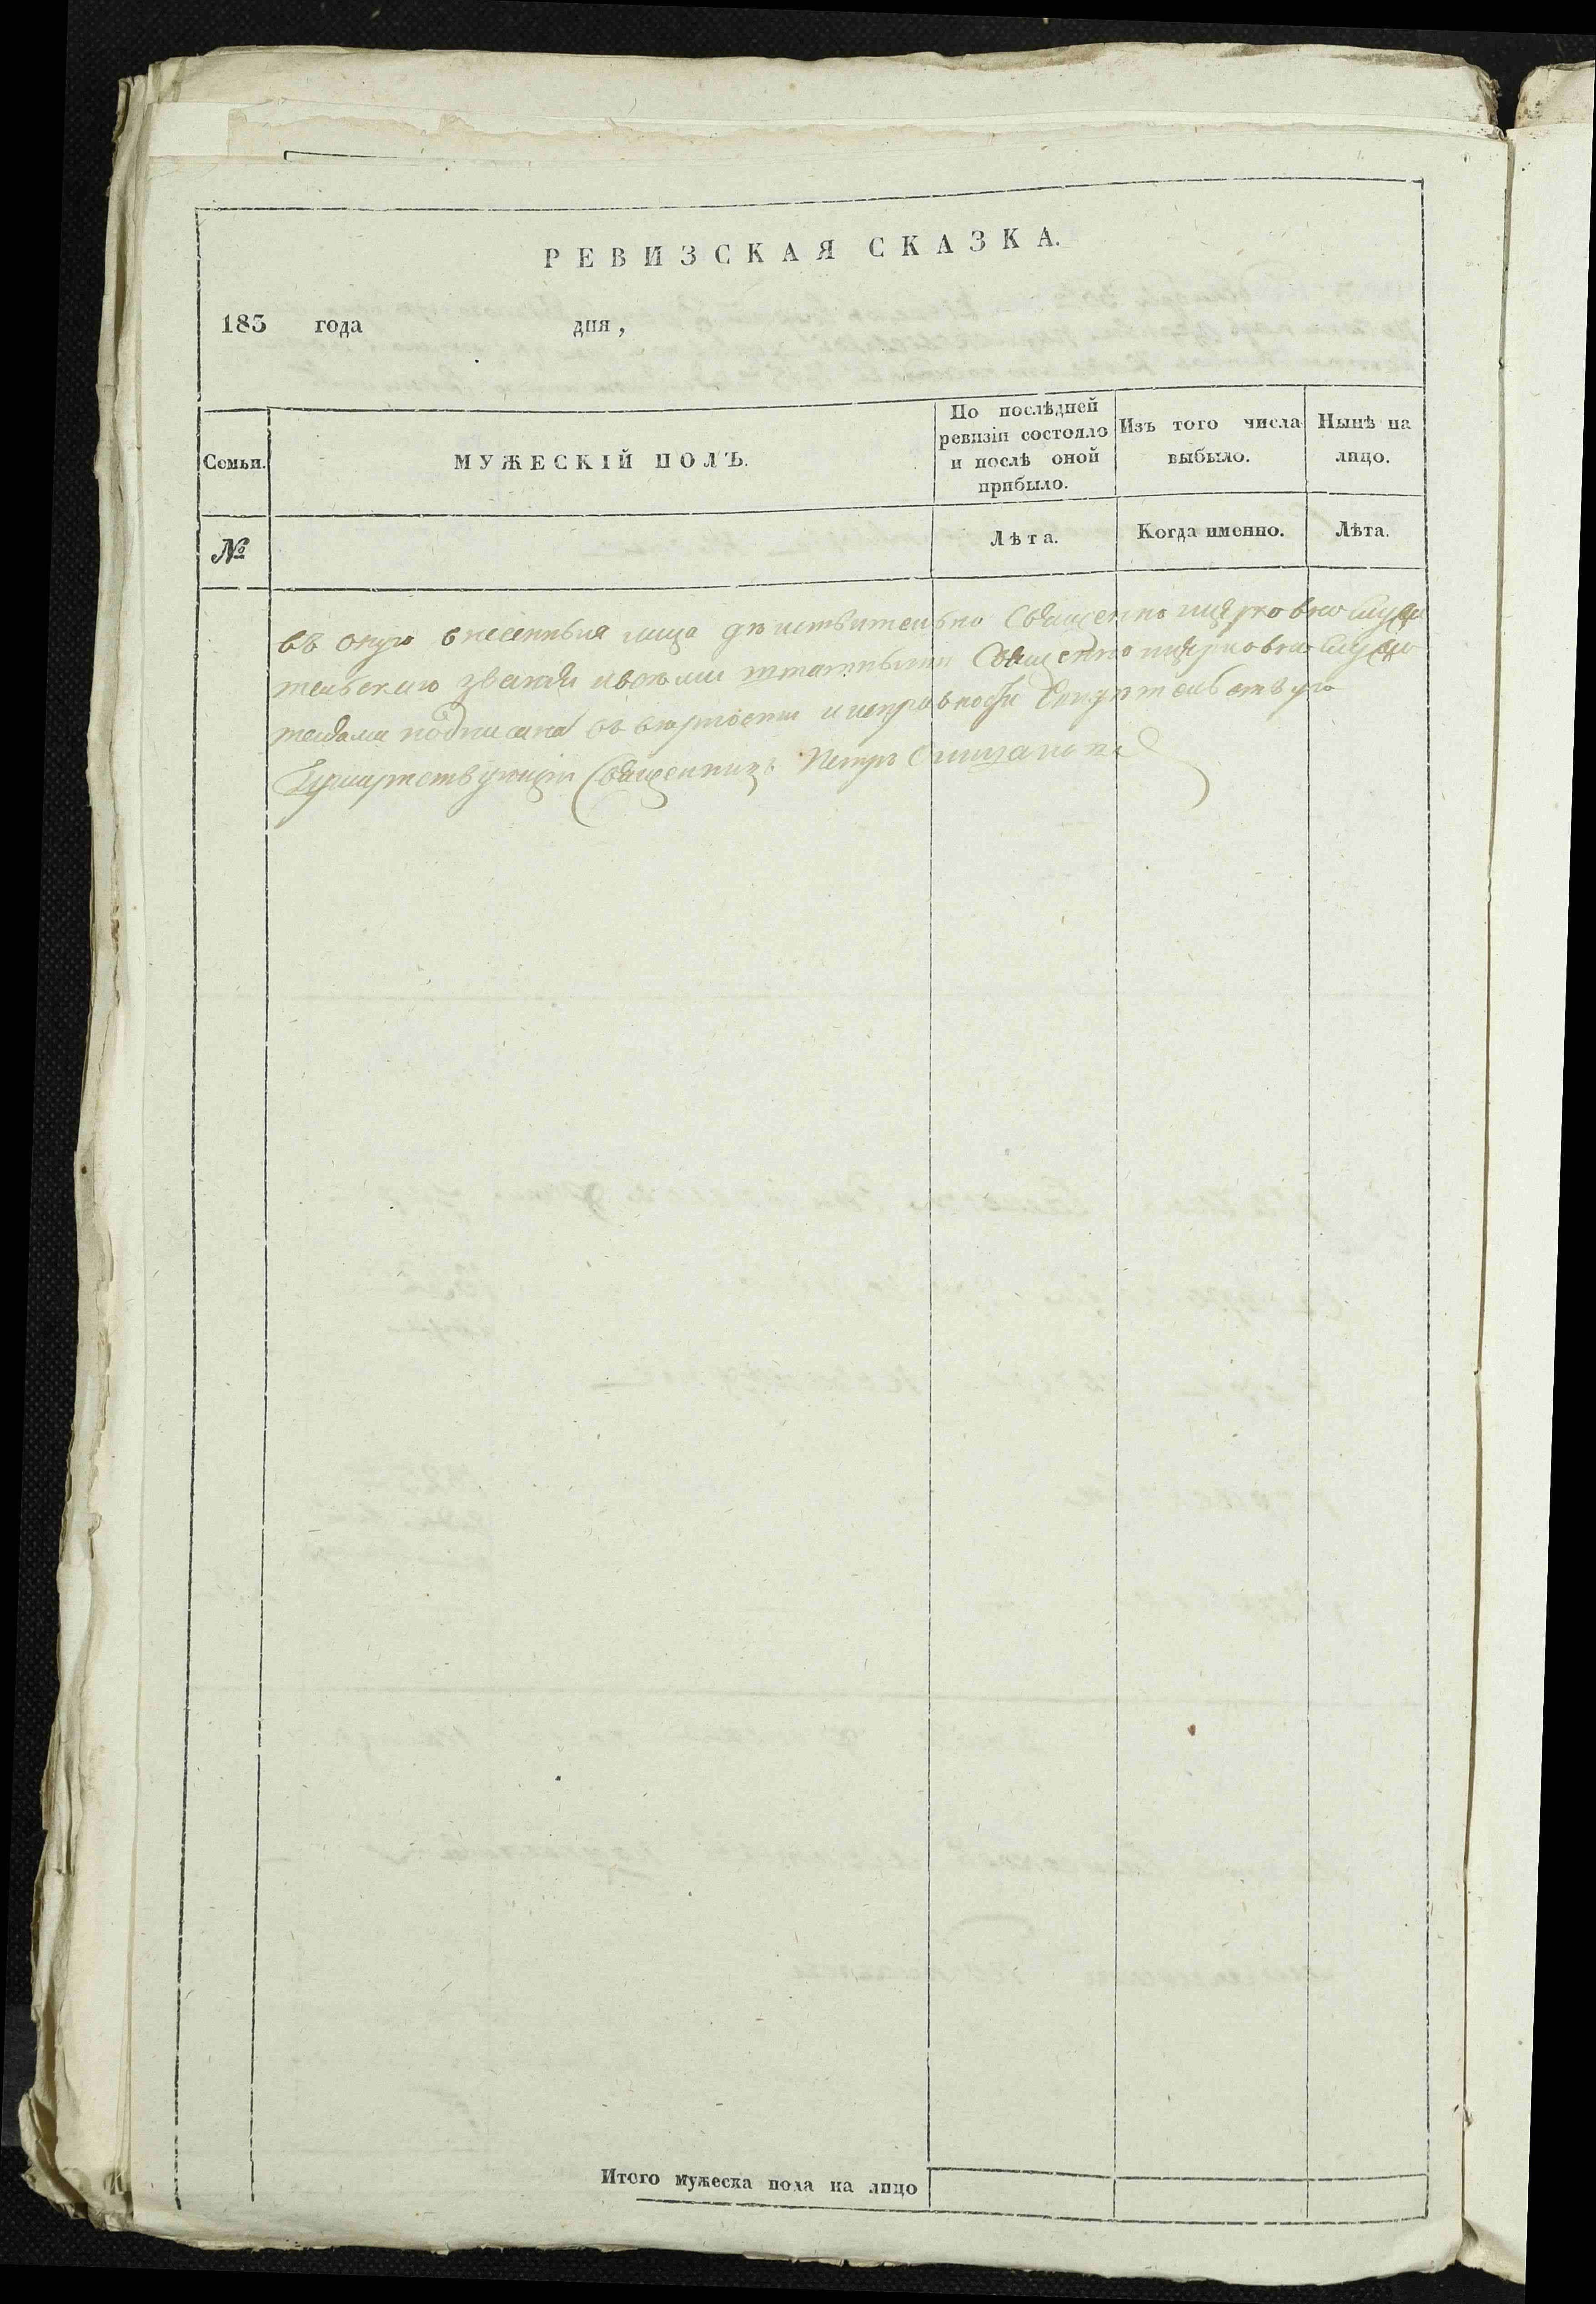 РЕВИЗСКАЯ СКАЗКА.
185 года дня,
Семьи.
МУЖЕСКІЙ ПОЛЪ.
По послѣдней
ревизіи состояло
и послѣ оной
прибыло.
Изъ того числа
выбыло.
Нынѣ на
лицо.
№
Лѣта.
Когда именно.
Лѣта.
въ оную внесенныя лица дѣиствительно Священно цярковно служи
тельскаго званія и всѣми штатными Священно цярковно служи
телями подписана въ вѣрности и исправности
Священникъ Петръ
Итого мужеска пола на лицо